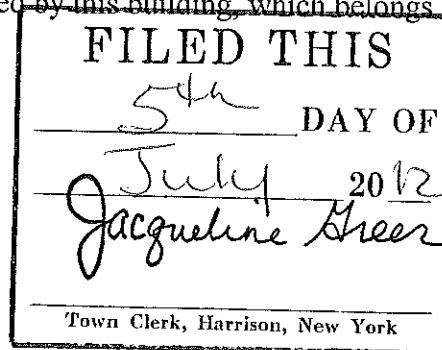 ed by this building, which belongs
FILED THIS
5th DAY OF
July 2012
Jacqueline Greer
Town Clerk, Harrison, New York